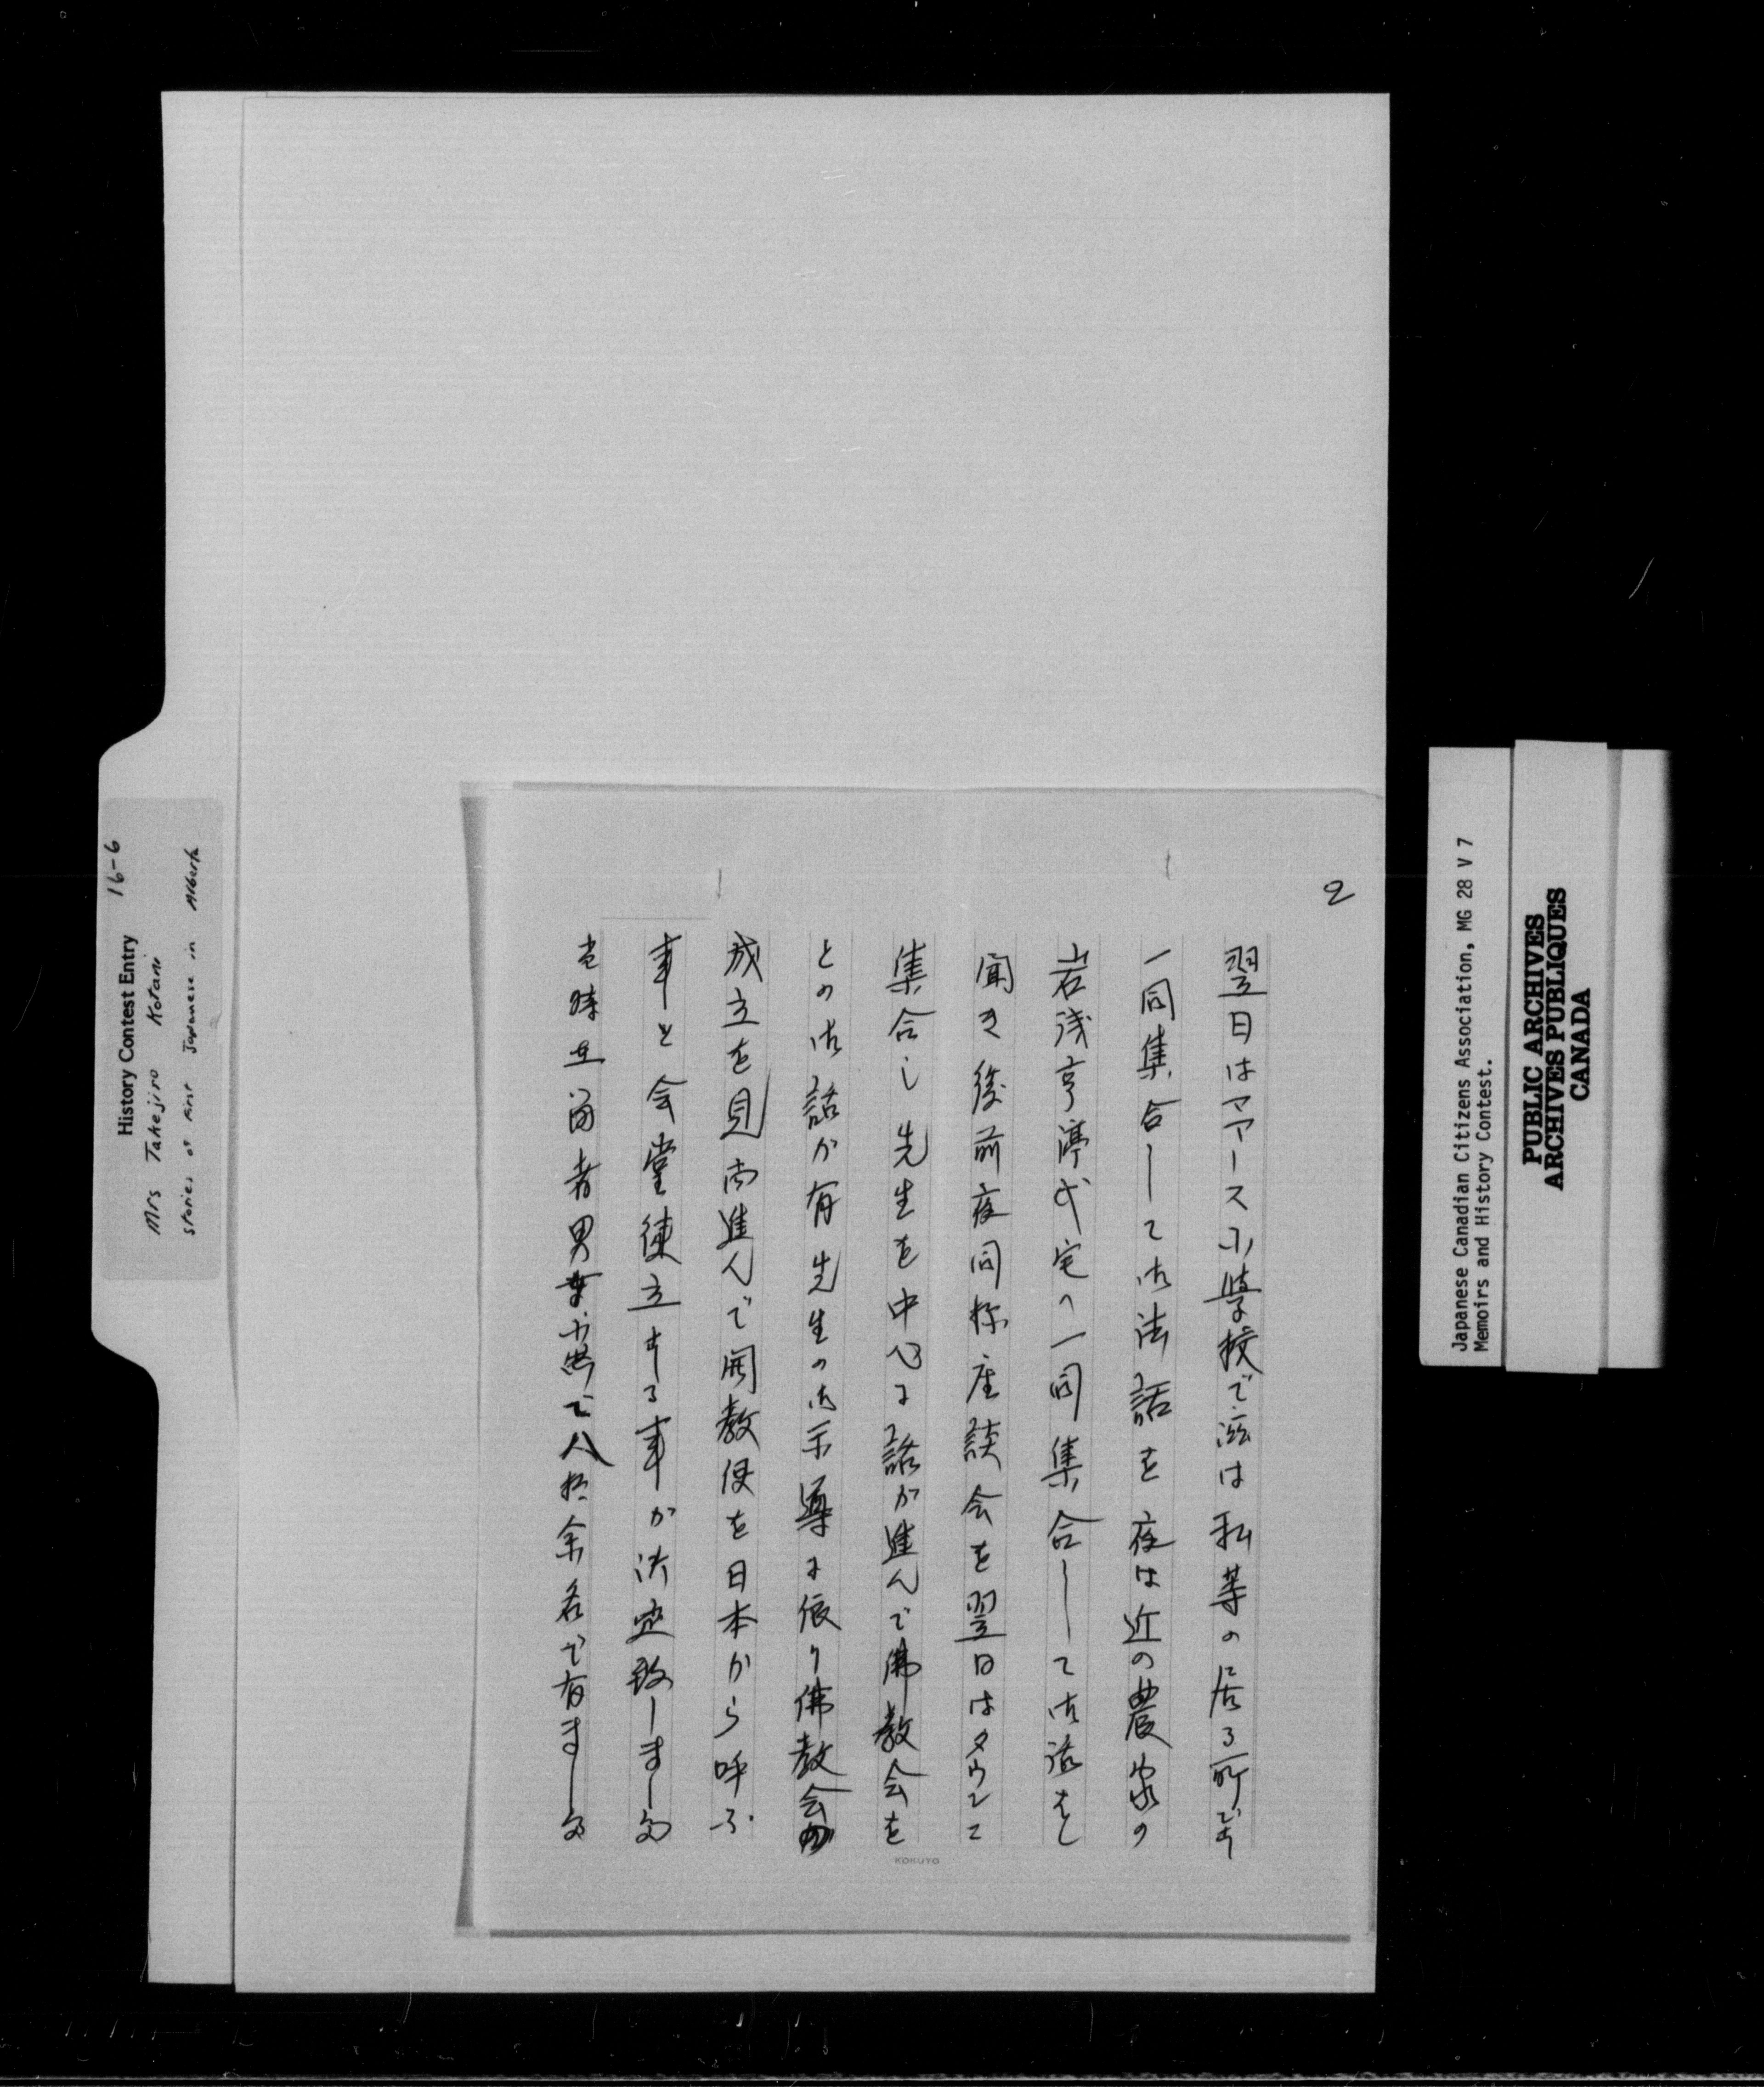 2
翌日はマアース小学校で滋は私等の居る所です
一同集合して御法話を夜は近の農家の
岩浅亨淳氏宅へ一同集合して御話をし
聞き後前夜同様座談会を翌日はタウンに
集合し先生を中心に話が進んで佛教会を
との御話が有先生の御示導に依り佛教会の
成立を見尚進んで開教使を日本から呼ぶ
事と会堂建立する事が決定致しました
当時在留者男女小供で八拾余名で有ました
KOKUYO
History Contest Entry 16-6
Mrs Takejiro Kotani
stories of first Japanese in Alberta
Japanese Canadian Citizens Association, MG 28 V 7
Memoirs and History Contest.
PUBLIC ARCHIVES
ARCHIVES PUBLIQUES
CANADA